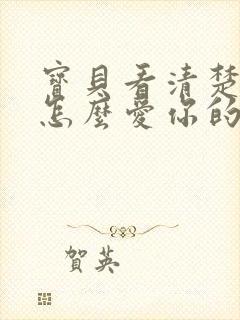 寶貝看清楚
怎麼愛你的
賀英